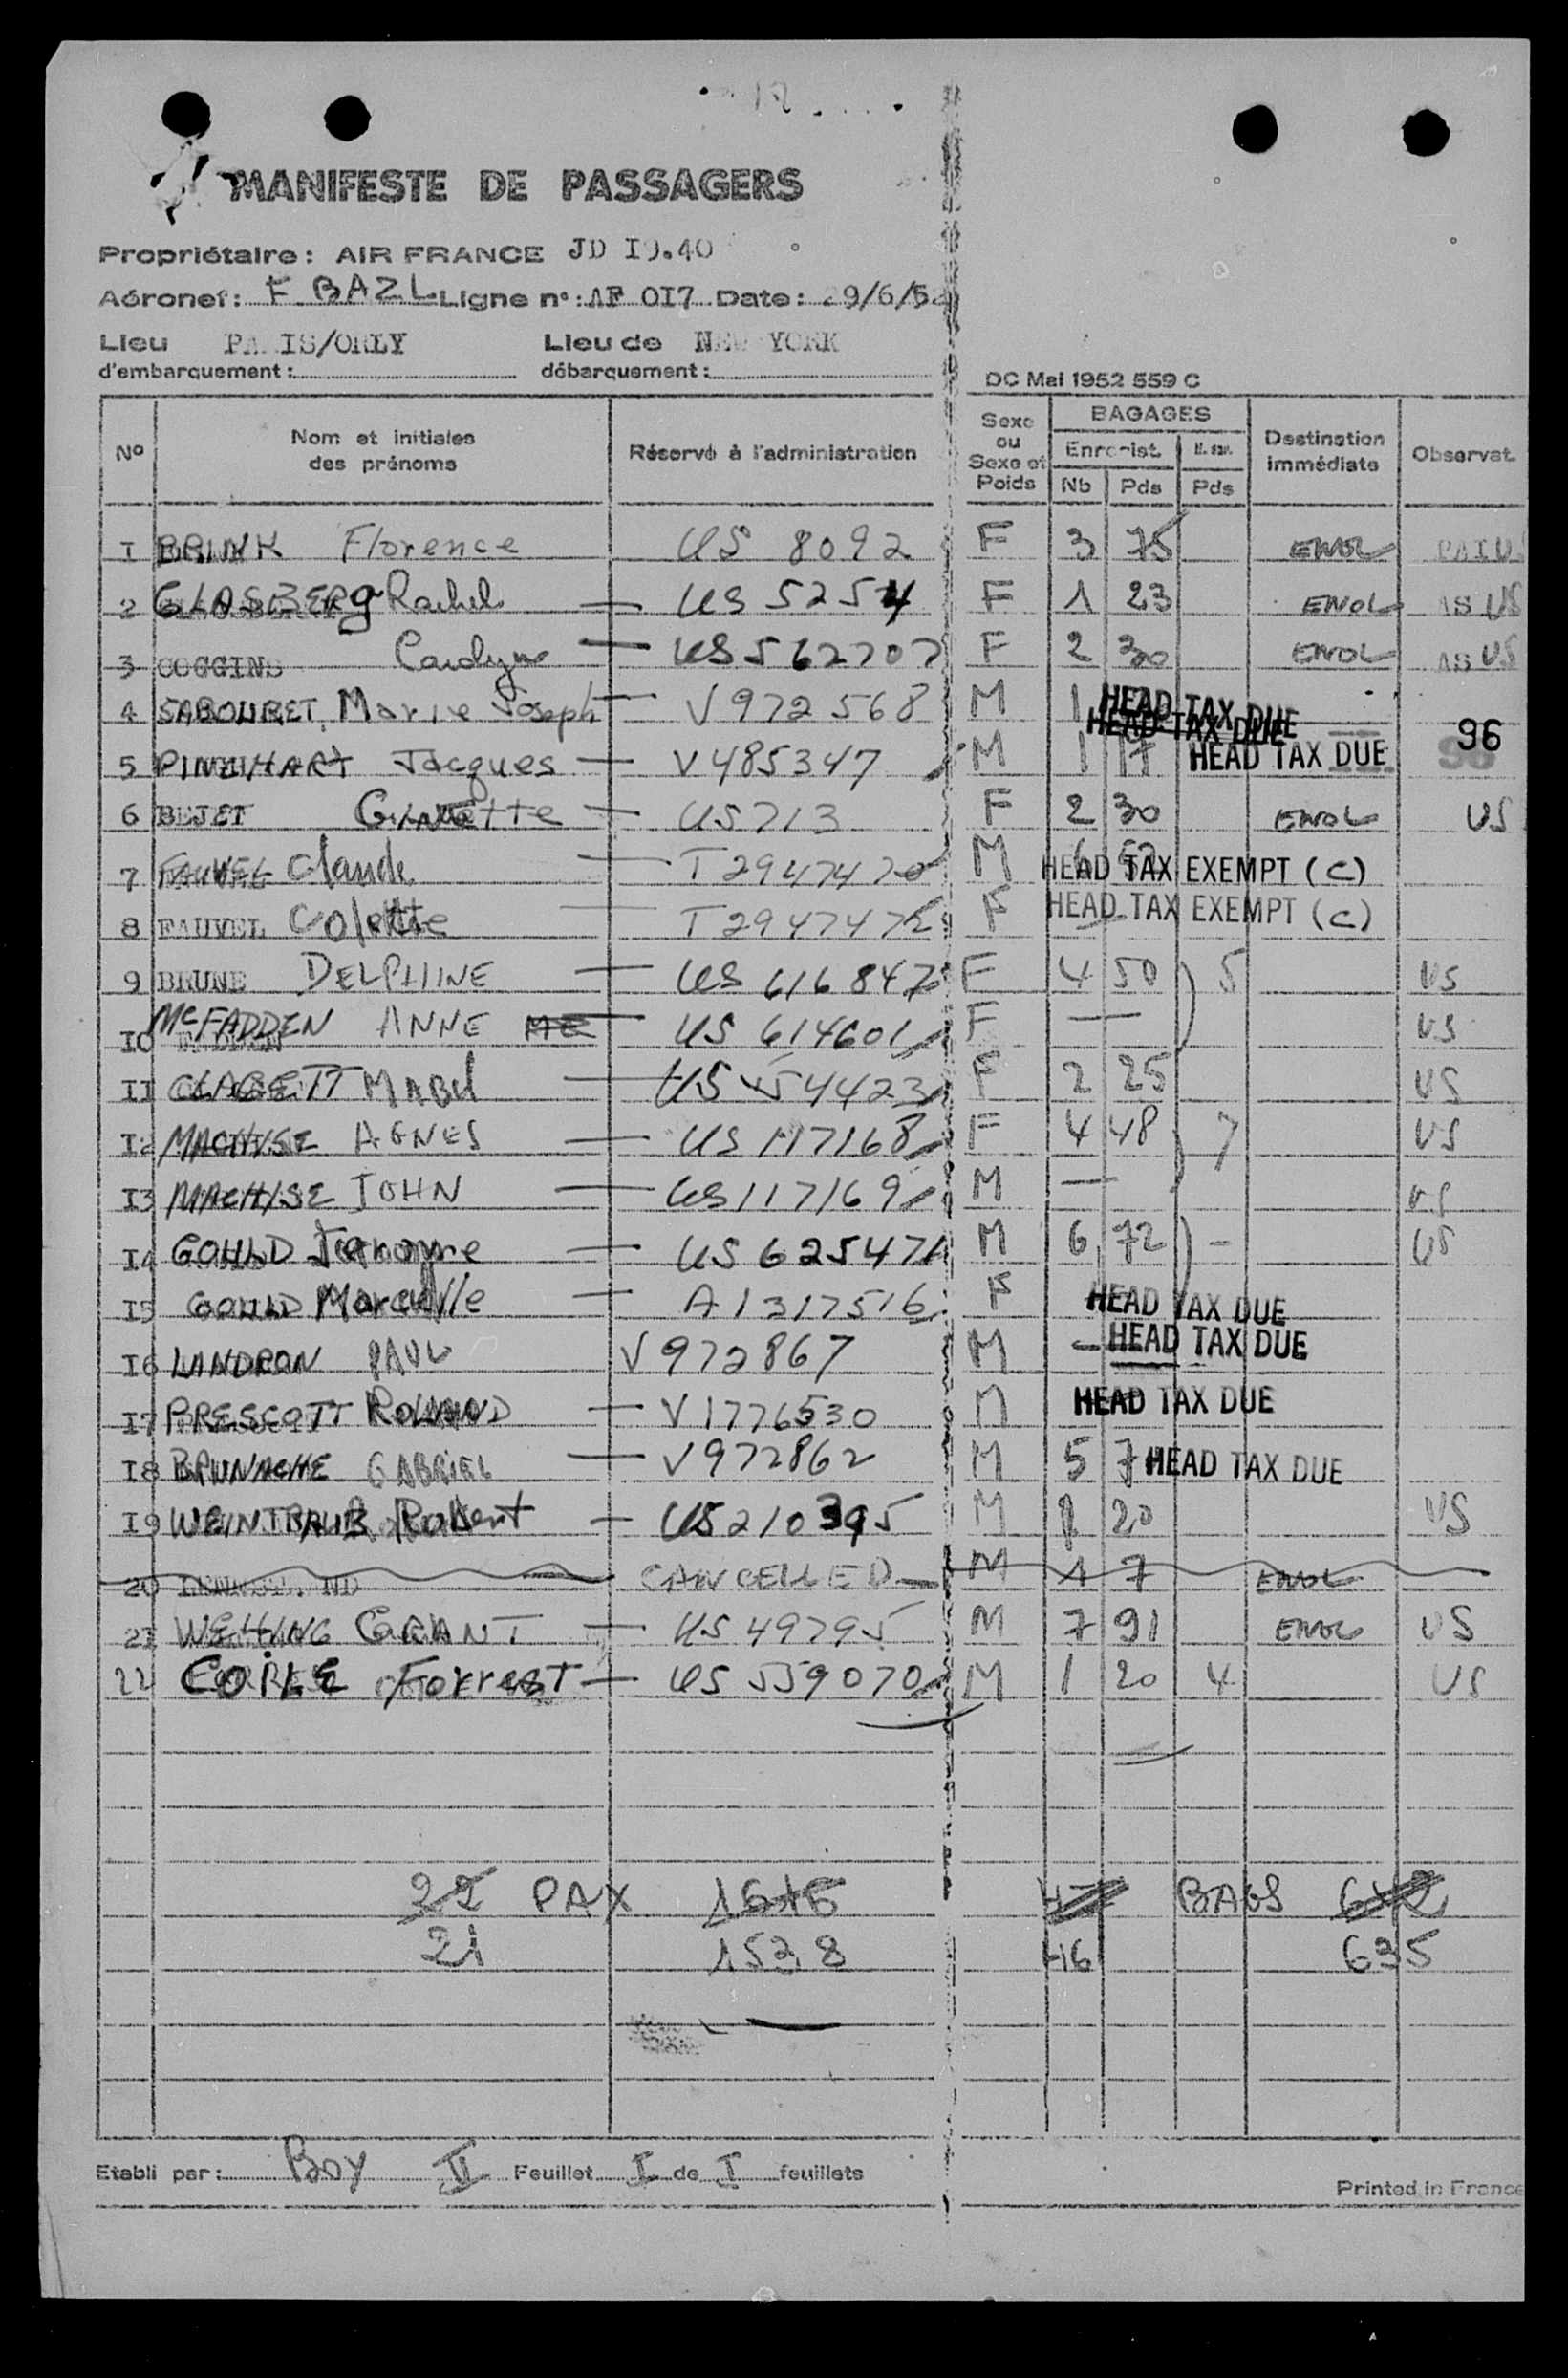 MANIFESTE DE PASSAGERS
Propriétaire : AIR FRANCE JD I9.40
Aéronef : F BAZL Ligne n° : AF OI7 Date : 29/6/52
Lieu d'embarquement : PARIS/ORLY Lieu de débarquement : NEW YORK
DC Mai 1952 559 C
N° Nom et initiales des prénoms Réservé à l'administration Sexe ou Sexe et Poids BAGAGES Enregist. Nb Pds Pds Destination immédiate Observat.
I BRINK Florence US 8092 F 3 75 ENOL US
2 GLASBERG Rachel — US 5254 F 1 23 ENOL AS US
3 COGGINS Carolyn — US 562707 F 2 30 ENOL AS US
4 SABOURET Marie Joseph — V 972568 M 1 HEAD TAX DUE HEAD TAX DUE
5 PINEHART Jacques — V 485347 M 1 17 HEAD TAX DUE 96
6 BEJET Ginette — US 713 F 2 30 ENOL US
7 FAUVEL Claude — T 2947470 M HEAD TAX EXEMPT (C)
8 FAUVEL Colette — T 2947472 F — HEAD TAX EXEMPT (C)
9 BRUNE DELPHINE — US 616847 F 4 50 5 US
IO McFADDEN ANNE US 614601 F — US
II CLAGETT MABEL — US 54423 F 2 25 US
I2 MACHISE AGNES — US 117168 F 4 48 7 US
I3 MACHISE JOHN — US 117169 M — US
I4 GOULD Jerome — US 625471 M 6 72 – US
I5 GOULD Marcelle — A 1317516 F HEAD TAX DUE
I6 LANDRON PAUL V 972867 M — HEAD TAX DUE
I7 PRESCOTT ROLLAND — V 1776530 M HEAD TAX DUE
I8 BRUNACHE GABRIEL — V 972862 M 5 7 HEAD TAX DUE
I9 WEINTRAUB Robert — US 210395 M 1 20 US
20 CANCELLED — M 1 7 ENOL
2I WEHING GRANT — US 49795 M 7 91 ENOL US
22 COILE Forrest — US 559070 M 1 20 4 US
22 PAX 1616 47 BAGS 642
21 1538 46 635
Etabli par : Boy II Feuillet I de I feuillets
Printed in France